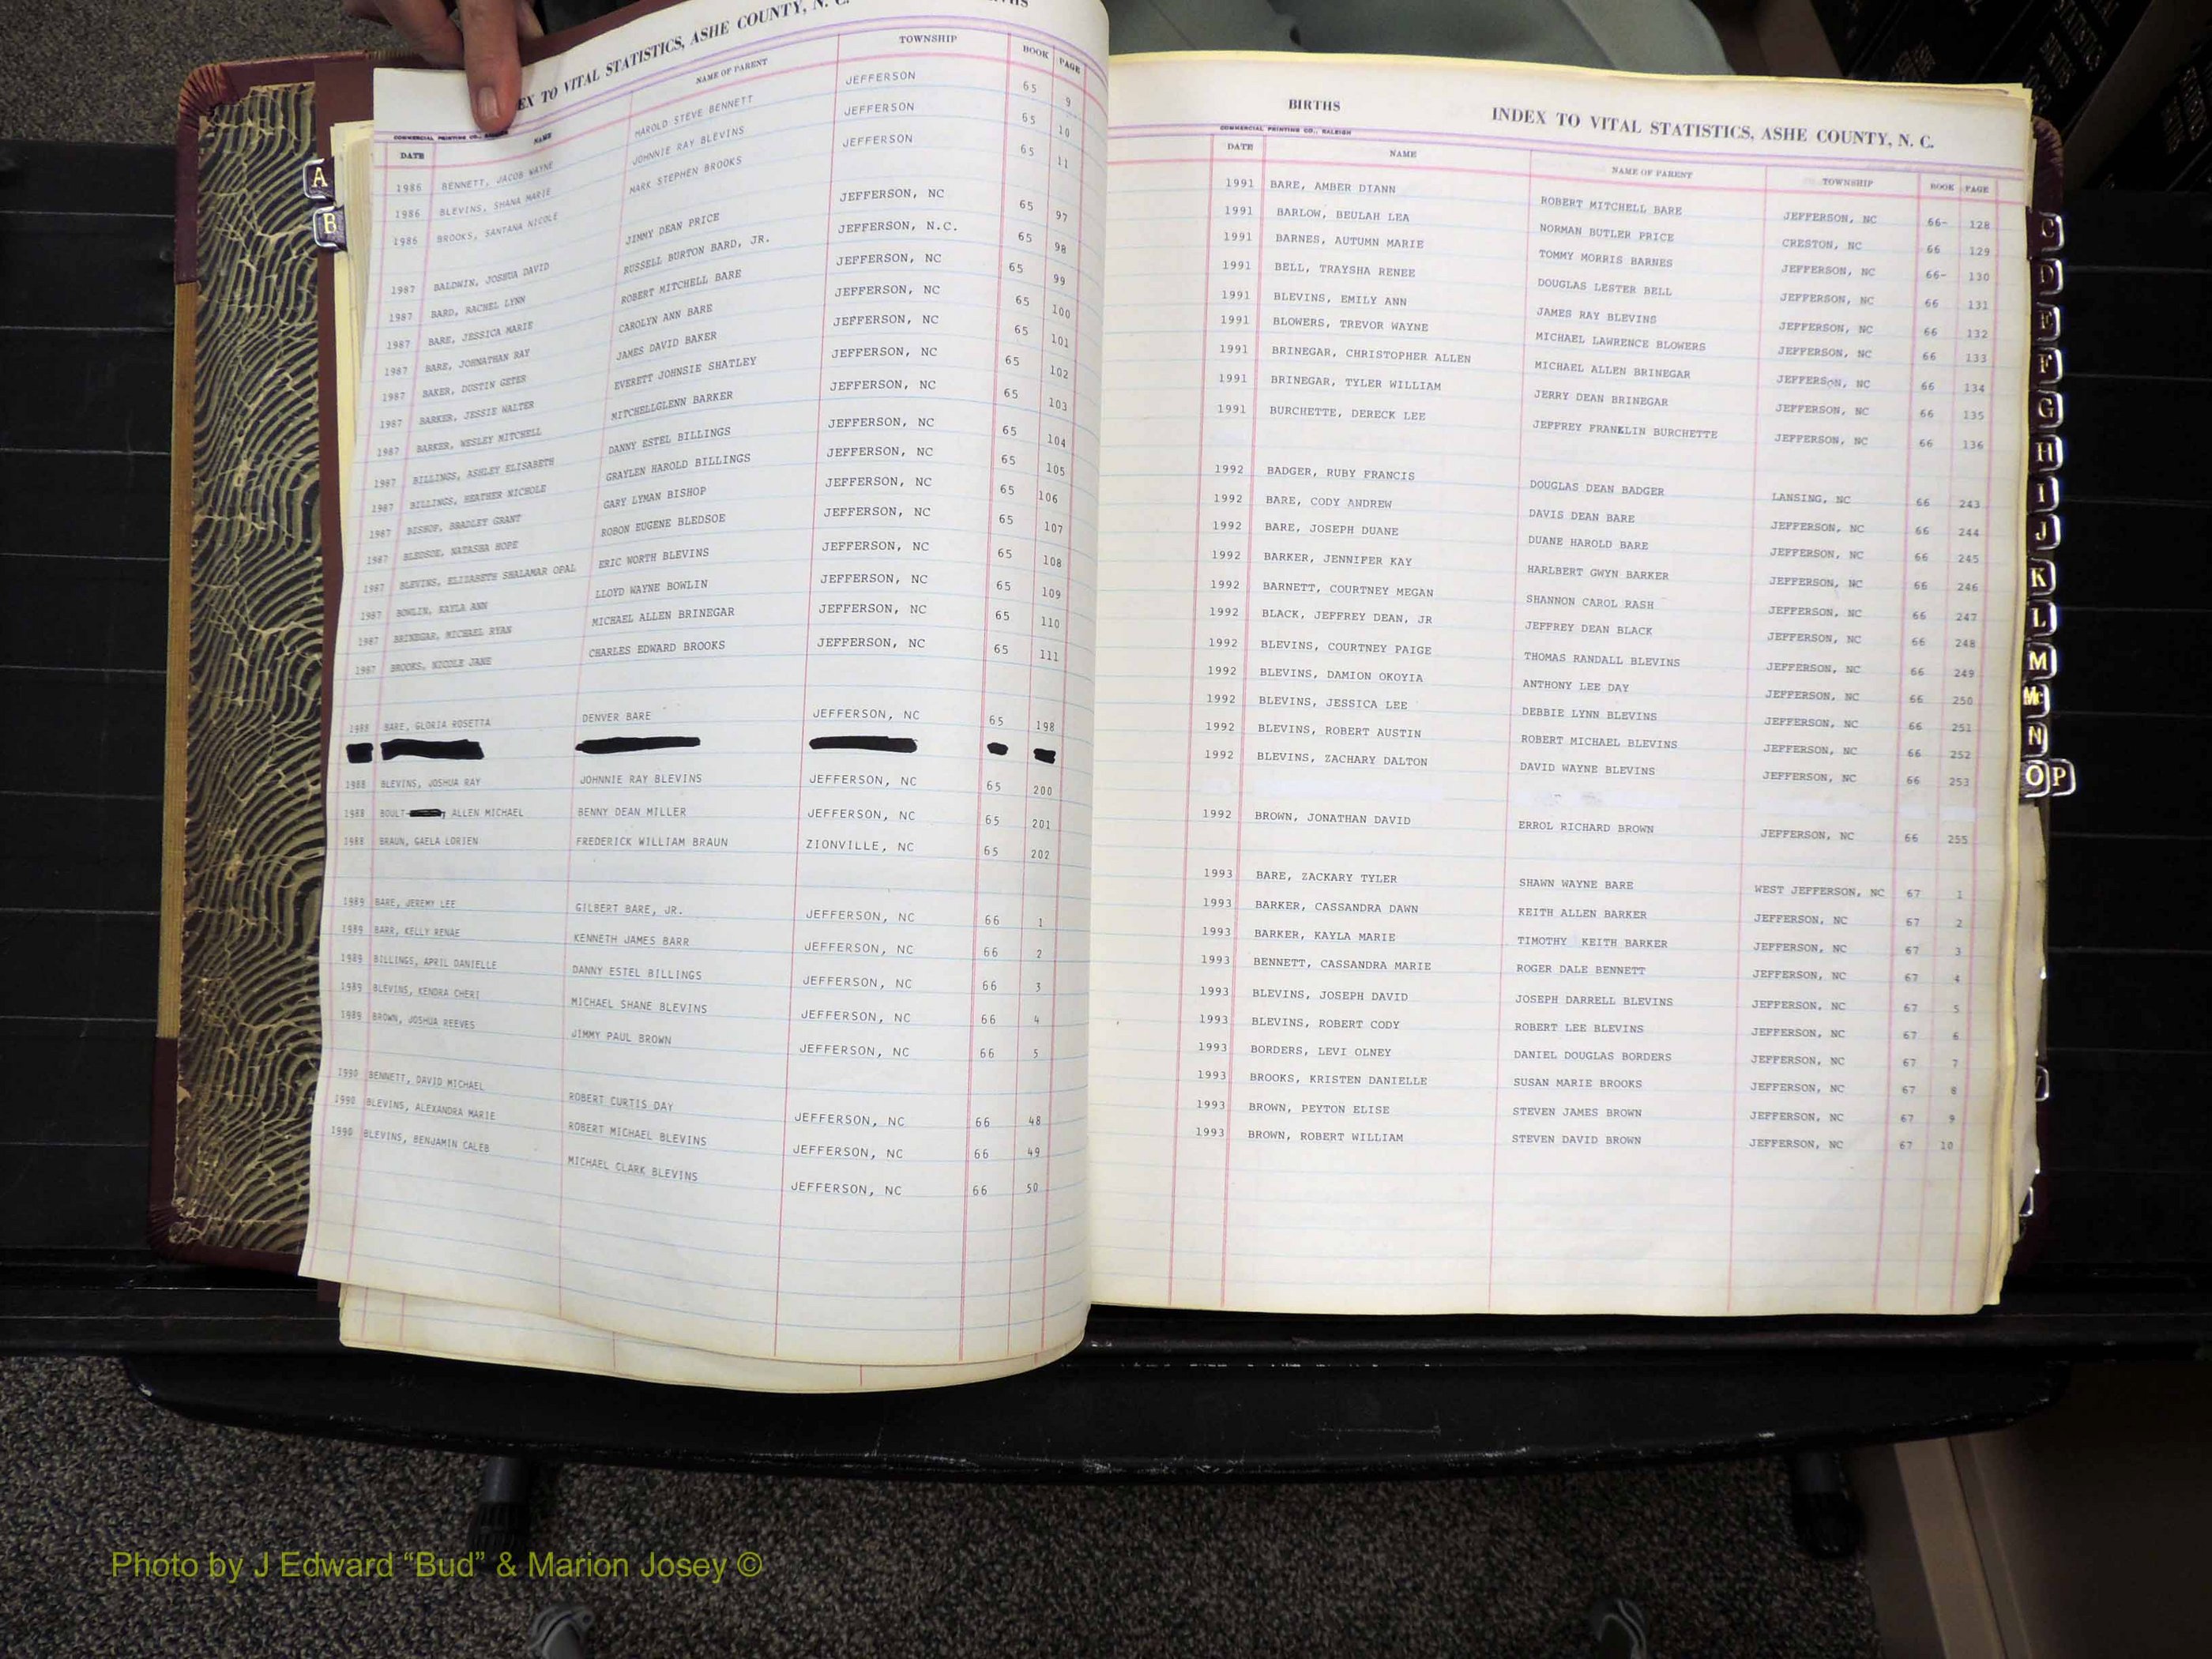 EX TO VITAL STATISTICS, ASHE COUNTY, N. C.
COMMERCIAL PRINTING CO.,
DATE NAME NAME OF PARENT TOWNSHIP BOOK PAGE
1986 BENNETT, JACOB WAYNE HAROLD STEVE BENNETT JEFFERSON 65 9
1986 BLEVINS, SHANA MARIE JOHNNIE RAY BLEVINS JEFFERSON 65 10
1986 BROOKS, SANTANA NICOLE MARK STEPHEN BROOKS JEFFERSON 65 11
1987 BALDWIN, JOSHUA DAVID JIMMY DEAN PRICE JEFFERSON, NC 65 97
1987 BARD, RACHEL LYNN RUSSELL BURTON BARD, JR. JEFFERSON, N.C. 65 98
1987 BARE, JESSICA MARIE ROBERT MITCHELL BARE JEFFERSON, NC 65 99
1987 BARE, JOHNATHAN RAY CAROLYN ANN BARE JEFFERSON, NC 65 100
1987 BAKER, DUSTIN GETER JAMES DAVID BAKER JEFFERSON, NC 65 101
1987 BARKER, JESSIE WALTER EVERETT JOHNSIE SHATLEY JEFFERSON, NC 65 102
1987 BARKER, WESLEY MITCHELL MITCHELLGLENN BARKER JEFFERSON, NC 65 103
1987 BILLINGS, ASHLEY ELISABETH DANNY ESTEL BILLINGS JEFFERSON, NC 65 104
1987 BILLINGS, HEATHER NICHOLE GRAYLEN HAROLD BILLINGS JEFFERSON, NC 65 105
1987 BISHOP, BRADLEY GRANT GARY LYMAN BISHOP JEFFERSON, NC 65 106
1987 BLEDSOE, NATASHA HOPE ROBON EUGENE BLEDSOE JEFFERSON, NC 65 107
1987 BLEVINS, ELIZABETH SHALAMAR OPAL ERIC NORTH BLEVINS JEFFERSON, NC 65 108
1987 BOWLIN, KAYLA ANN LLOYD WAYNE BOWLIN JEFFERSON, NC 65 109
1987 BRINEGAR, MICHAEL RYAN MICHAEL ALLEN BRINEGAR JEFFERSON, NC 65 110
1987 BROOKS, NICOLE JANE CHARLES EDWARD BROOKS JEFFERSON, NC 65 111
1988 BARE, GLORIA ROSETTA DENVER BARE JEFFERSON, NC 65 198
1988 BLEVINS, JOSHUA RAY JOHNNIE RAY BLEVINS JEFFERSON, NC 65 200
1988 BOULT- , ALLEN MICHAEL BENNY DEAN MILLER JEFFERSON, NC 65 201
1988 BRAUN, GAELA LORIEN FREDERICK WILLIAM BRAUN ZIONVILLE, NC 65 202
1989 BARE, JEREMY LEE GILBERT BARE, JR. JEFFERSON, NC 66 1
1989 BARR, KELLY RENAE KENNETH JAMES BARR JEFFERSON, NC 66 2
1989 BILLINGS, APRIL DANIELLE DANNY ESTEL BILLINGS JEFFERSON, NC 66 3
1989 BLEVINS, KENDRA CHERI MICHAEL SHANE BLEVINS JEFFERSON, NC 66 4
1989 BROWN, JOSHUA REEVES JIMMY PAUL BROWN JEFFERSON, NC 66 5
1990 BENNETT, DAVID MICHAEL ROBERT CURTIS DAY JEFFERSON, NC 66 48
1990 BLEVINS, ALEXANDRA MARIE ROBERT MICHAEL BLEVINS JEFFERSON, NC 66 49
1990 BLEVINS, BENJAMIN CALEB MICHAEL CLARK BLEVINS JEFFERSON, NC 66 50
A
B
BIRTHS INDEX TO VITAL STATISTICS, ASHE COUNTY, N. C.
COMMERCIAL PRINTING CO., RALEIGH
DATE NAME NAME OF PARENT TOWNSHIP BOOK PAGE
1991 BARE, AMBER DIANN ROBERT MITCHELL BARE JEFFERSON, NC 66- 128
1991 BARLOW, BEULAH LEA NORMAN BUTLER PRICE CRESTON, NC 66 129
1991 BARNES, AUTUMN MARIE TOMMY MORRIS BARNES JEFFERSON, NC 66- 130
1991 BELL, TRAYSHA RENEE DOUGLAS LESTER BELL JEFFERSON, NC 66 131
1991 BLEVINS, EMILY ANN JAMES RAY BLEVINS JEFFERSON, NC 66 132
1991 BLOWERS, TREVOR WAYNE MICHAEL LAWRENCE BLOWERS JEFFERSON, NC 66 133
1991 BRINEGAR, CHRISTOPHER ALLEN MICHAEL ALLEN BRINEGAR JEFFERSON, NC 66 134
1991 BRINEGAR, TYLER WILLIAM JERRY DEAN BRINEGAR JEFFERSON, NC 66 135
1991 BURCHETTE, DERECK LEE JEFFREY FRANKLIN BURCHETTE JEFFERSON, NC 66 136
1992 BADGER, RUBY FRANCIS DOUGLAS DEAN BADGER LANSING, NC 66 243
1992 BARE, CODY ANDREW DAVIS DEAN BARE JEFFERSON, NC 66 244
1992 BARE, JOSEPH DUANE DUANE HAROLD BARE JEFFERSON, NC 66 245
1992 BARKER, JENNIFER KAY HARLBERT GWYN BARKER JEFFERSON, NC 66 246
1992 BARNETT, COURTNEY MEGAN SHANNON CAROL RASH JEFFERSON, NC 66 247
1992 BLACK, JEFFREY DEAN, JR JEFFREY DEAN BLACK JEFFERSON, NC 66 248
1992 BLEVINS, COURTNEY PAIGE THOMAS RANDALL BLEVINS JEFFERSON, NC 66 249
1992 BLEVINS, DAMION OKOYIA ANTHONY LEE DAY JEFFERSON, NC 66 250
1992 BLEVINS, JESSICA LEE DEBBIE LYNN BLEVINS JEFFERSON, NC 66 251
1992 BLEVINS, ROBERT AUSTIN ROBERT MICHAEL BLEVINS JEFFERSON, NC 66 252
1992 BLEVINS, ZACHARY DALTON DAVID WAYNE BLEVINS JEFFERSON, NC 66 253
1992 BROWN, JONATHAN DAVID ERROL RICHARD BROWN JEFFERSON, NC 66 255
1993 BARE, ZACKARY TYLER SHAWN WAYNE BARE WEST JEFFERSON, NC 67 1
1993 BARKER, CASSANDRA DAWN KEITH ALLEN BARKER JEFFERSON, NC 67 2
1993 BARKER, KAYLA MARIE TIMOTHY KEITH BARKER JEFFERSON, NC 67 3
1993 BENNETT, CASSANDRA MARIE ROGER DALE BENNETT JEFFERSON, NC 67 4
1993 BLEVINS, JOSEPH DAVID JOSEPH DARRELL BLEVINS JEFFERSON, NC 67 5
1993 BLEVINS, ROBERT CODY ROBERT LEE BLEVINS JEFFERSON, NC 67 6
1993 BORDERS, LEVI OLNEY DANIEL DOUGLAS BORDERS JEFFERSON, NC 67 7
1993 BROOKS, KRISTEN DANIELLE SUSAN MARIE BROOKS JEFFERSON, NC 67 8
1993 BROWN, PEYTON ELISE STEVEN JAMES BROWN JEFFERSON, NC 67 9
1993 BROWN, ROBERT WILLIAM STEVEN DAVID BROWN JEFFERSON, NC 67 10
C
D
E
F
G
H
I
J
K
L
M
Mc
N
O P
Photo by J Edward “Bud” & Marion Josey ©